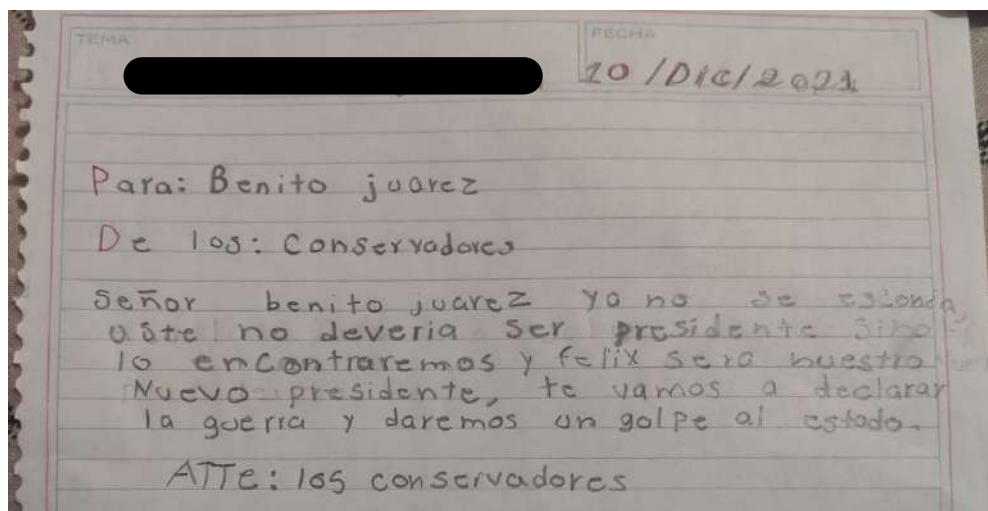 TEMA
FECHA
10/DIC/2021
Para: Benito juarez
De los: Conservadores
Señor benito juarez ya no se esconda,
uste no deveria ser presidente sino
lo encontraremos y felix sera nuestro
Nuevo presidente, te vamos a declarar
la guerra y daremos un golpe al estado.
ATTE: los conservadores